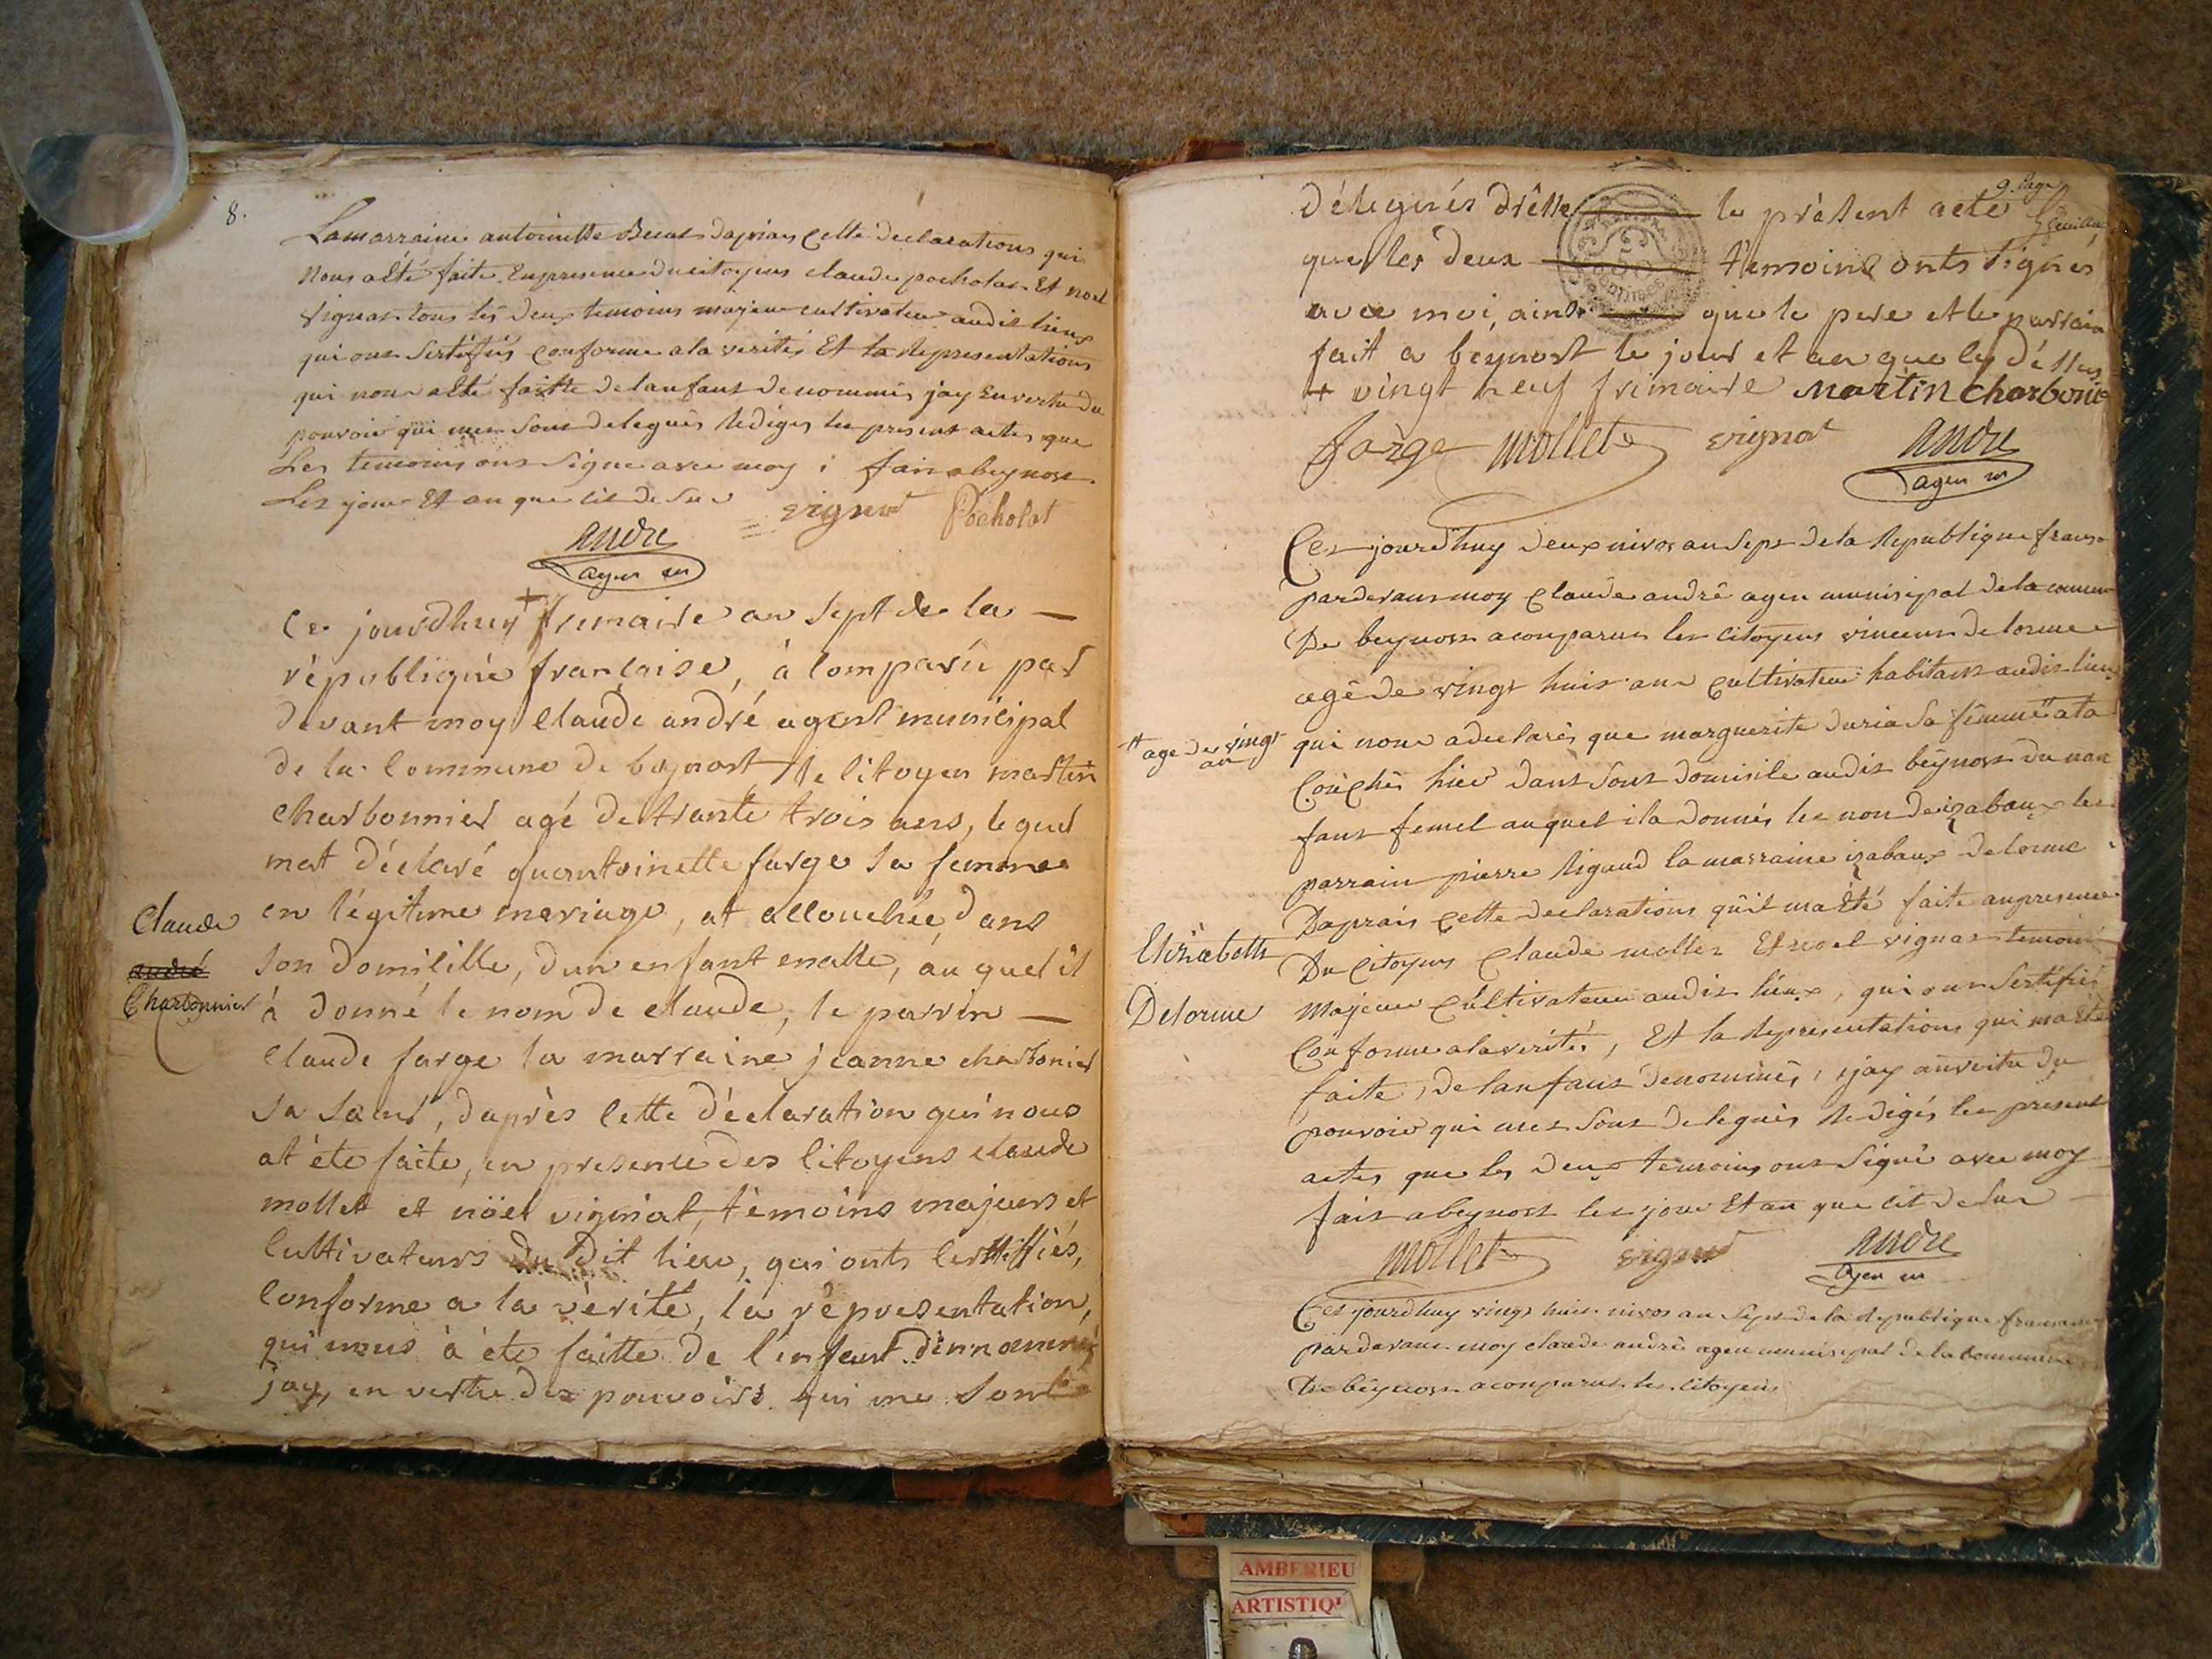 8.
Lamarraine antoinette Beaut daprais Cette declarations qui
Nous a Eté faite En presence du citoyens claude pocholat Et noel
vignat tous les deux temoins majeur cultivateur audit lieux
qui ont Sertifiés conforme a la verités Et la Representations
qui nous a Eté faitte de lanfant denommés jay En vertu du
pouvoir qui mes sont delegués Rediges les present actes que
Les temoins ont Signe avec moy i fait a beynost
Les jour Et an que cit de Sus
vignat Pocholat
andre
agen m
Ce jourdhuy + frimaire an sept de la —
république française, à comparu par
devant moy claude andré agent municipal
de la commune de beynost le citoyen martin
charbonnier agé de trante trois ans, lequel
mat déclaré quantoinette farge sa femme
en légitime mariage, at allouchée dans
son domicille, dun enfant malle, au quel il
à donné le nom de claude, le parrin —
claude farge la marraine jeanne charbonier
sa sœur, daprès cette déclaration qui nous
at été faite, en presence des citoyens claude
mollet et nöel vignat, témoins majeurs et
cultivateurs du dit lieu, qui onts certiffiés,
conforme a la vèrité, la répresentation,
qui nous à été faitte de l'enfant dennommé
jay, en vertu des pouvoirs qui me sont
Claude
andré
Charbonnier
9. page
délegués drésse le présent acte
que les deux témoins onts signés
avec moi, ainsi que le pere et le parrain
fait a beynost le jour et an que cy déssus
+ vingt neuf frimaire martin charbonie
farge mollet vignat andre
agen m
Cet jourdhuy deux nivos an Sept de la Republique franse
pardevant moy Claude andré agen munisipal de la commune
De beynost a conparus les citoyens vincent delorme
agé de vingt huit ans Cultivateur habitant audit lieux
qui nous a declarés que marguerite duria sa femme # ata
# age de vingt
an
Couchés hier dans sont domisile audit beynost du nan
fant femel auquel ila donnés les non de izabaux les
parrain pierre Rigaud la marraine izabaux delorme
Daprais Cette declarations quil ma Eté faite anpresence
Du Citoyens Claude mollet Et noel vignat temoins
Majeur Cultivateur audit lieux, qui ont Sertifiés
Conforme a la verités, Et la Representations qui ma Eté
faite, de lanfant denommés, jay anvertu du
pouvoir qui mes sont delegués Redigés les present
actes que les deux temoins ont Signé avec moy
fait a beynost les jour Et an que cit de Sus —
mollet vignat andre
agen m
Elisabeth
Delorme
Cet jourdhuy vingt huit nivos an Sept de la Republique franse
pardevant moy claude andré agen munisipal de la commune
De beynost a conparut les citoyens
AMBERIEU
ARTISTIQ